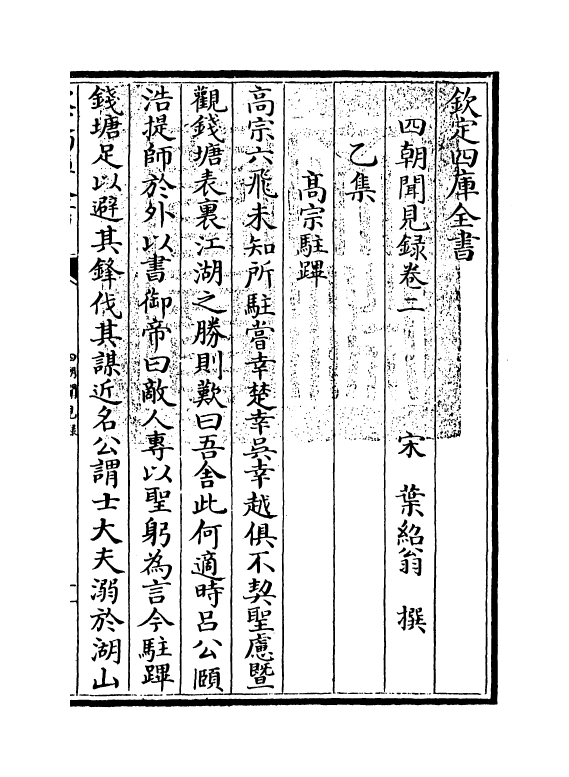 欽定四庫全書
四朝聞見録卷二 宋 葉紹翁 撰
乙集
髙宗駐蹕
高宗六飛未知所駐嘗幸楚幸吳幸越俱不契聖慮暨
觀錢塘表裏江湖之勝則歎曰吾舍此何適時呂公頤
浩提師於外以書御帝曰敵人專以聖躬為言今駐蹕
錢塘足以避其鋒伐其謀近名公謂士大夫溺於湖山